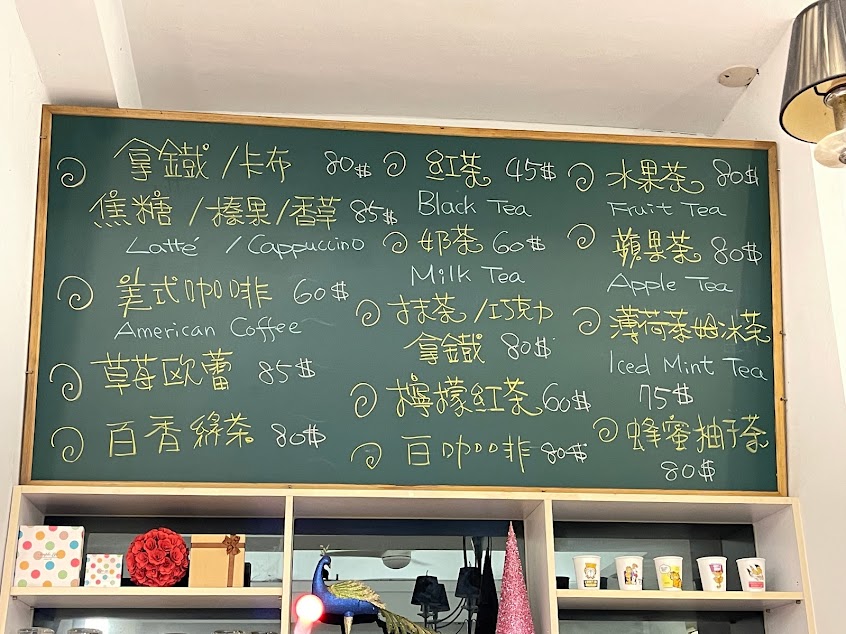 拿鐵 / 卡布 80$
焦糖 / 榛果 / 香草 85$
Latté / Cappuccino
美式咖啡 60$
American Coffee
草莓歐蕾 85$
百香綠茶 80$
紅茶 45$
Black Tea
奶茶 60$
Milk Tea
抹茶 / 巧克力
拿鐵 80$
檸檬紅茶 60$
百咖啡 80$
水果茶 80$
Fruit Tea
蘋果茶 80$
Apple Tea
薄荷茶 冰茶
Iced Mint Tea
75$
蜂蜜柚子茶
80$